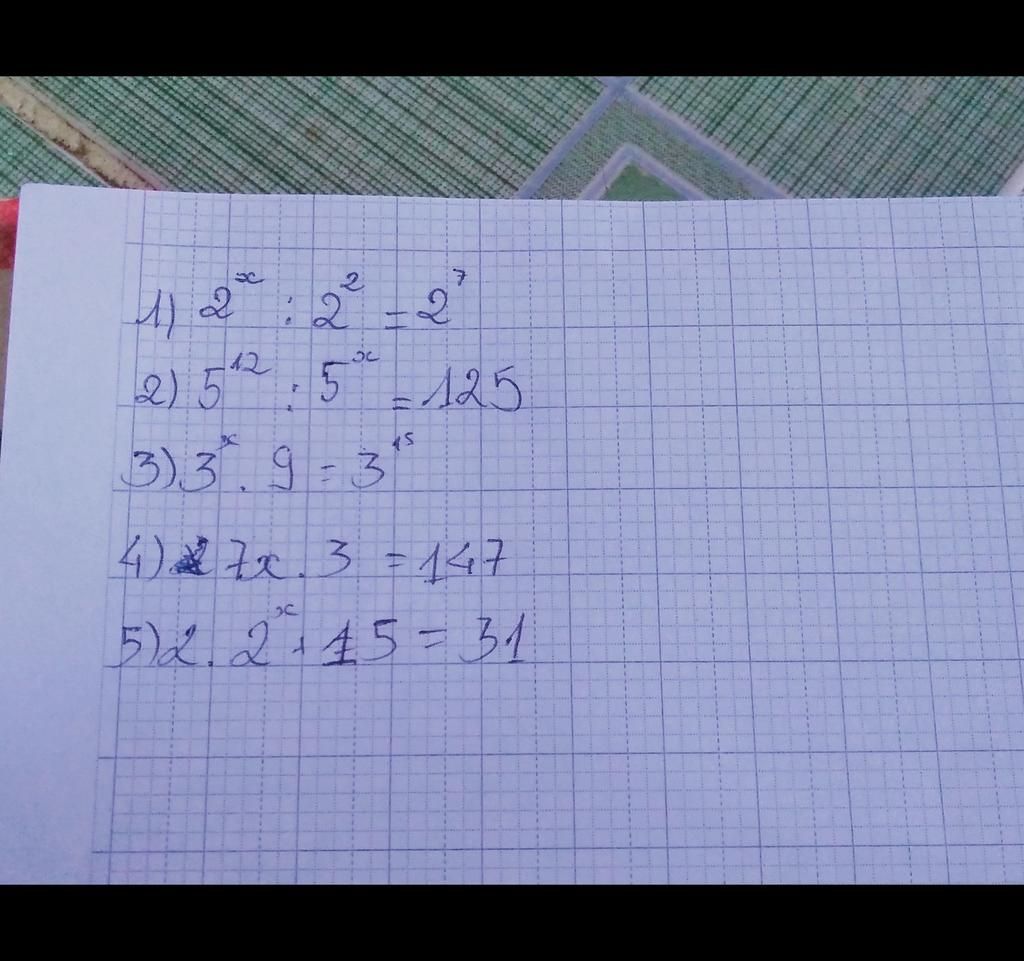 1) 2^x : 2^2 = 2^7
2) 5^12 : 5^x = 125
3) 3^x . 9 = 3^15
4) 7x . 3 = 147
5) 2 . 2^x + 15 = 31